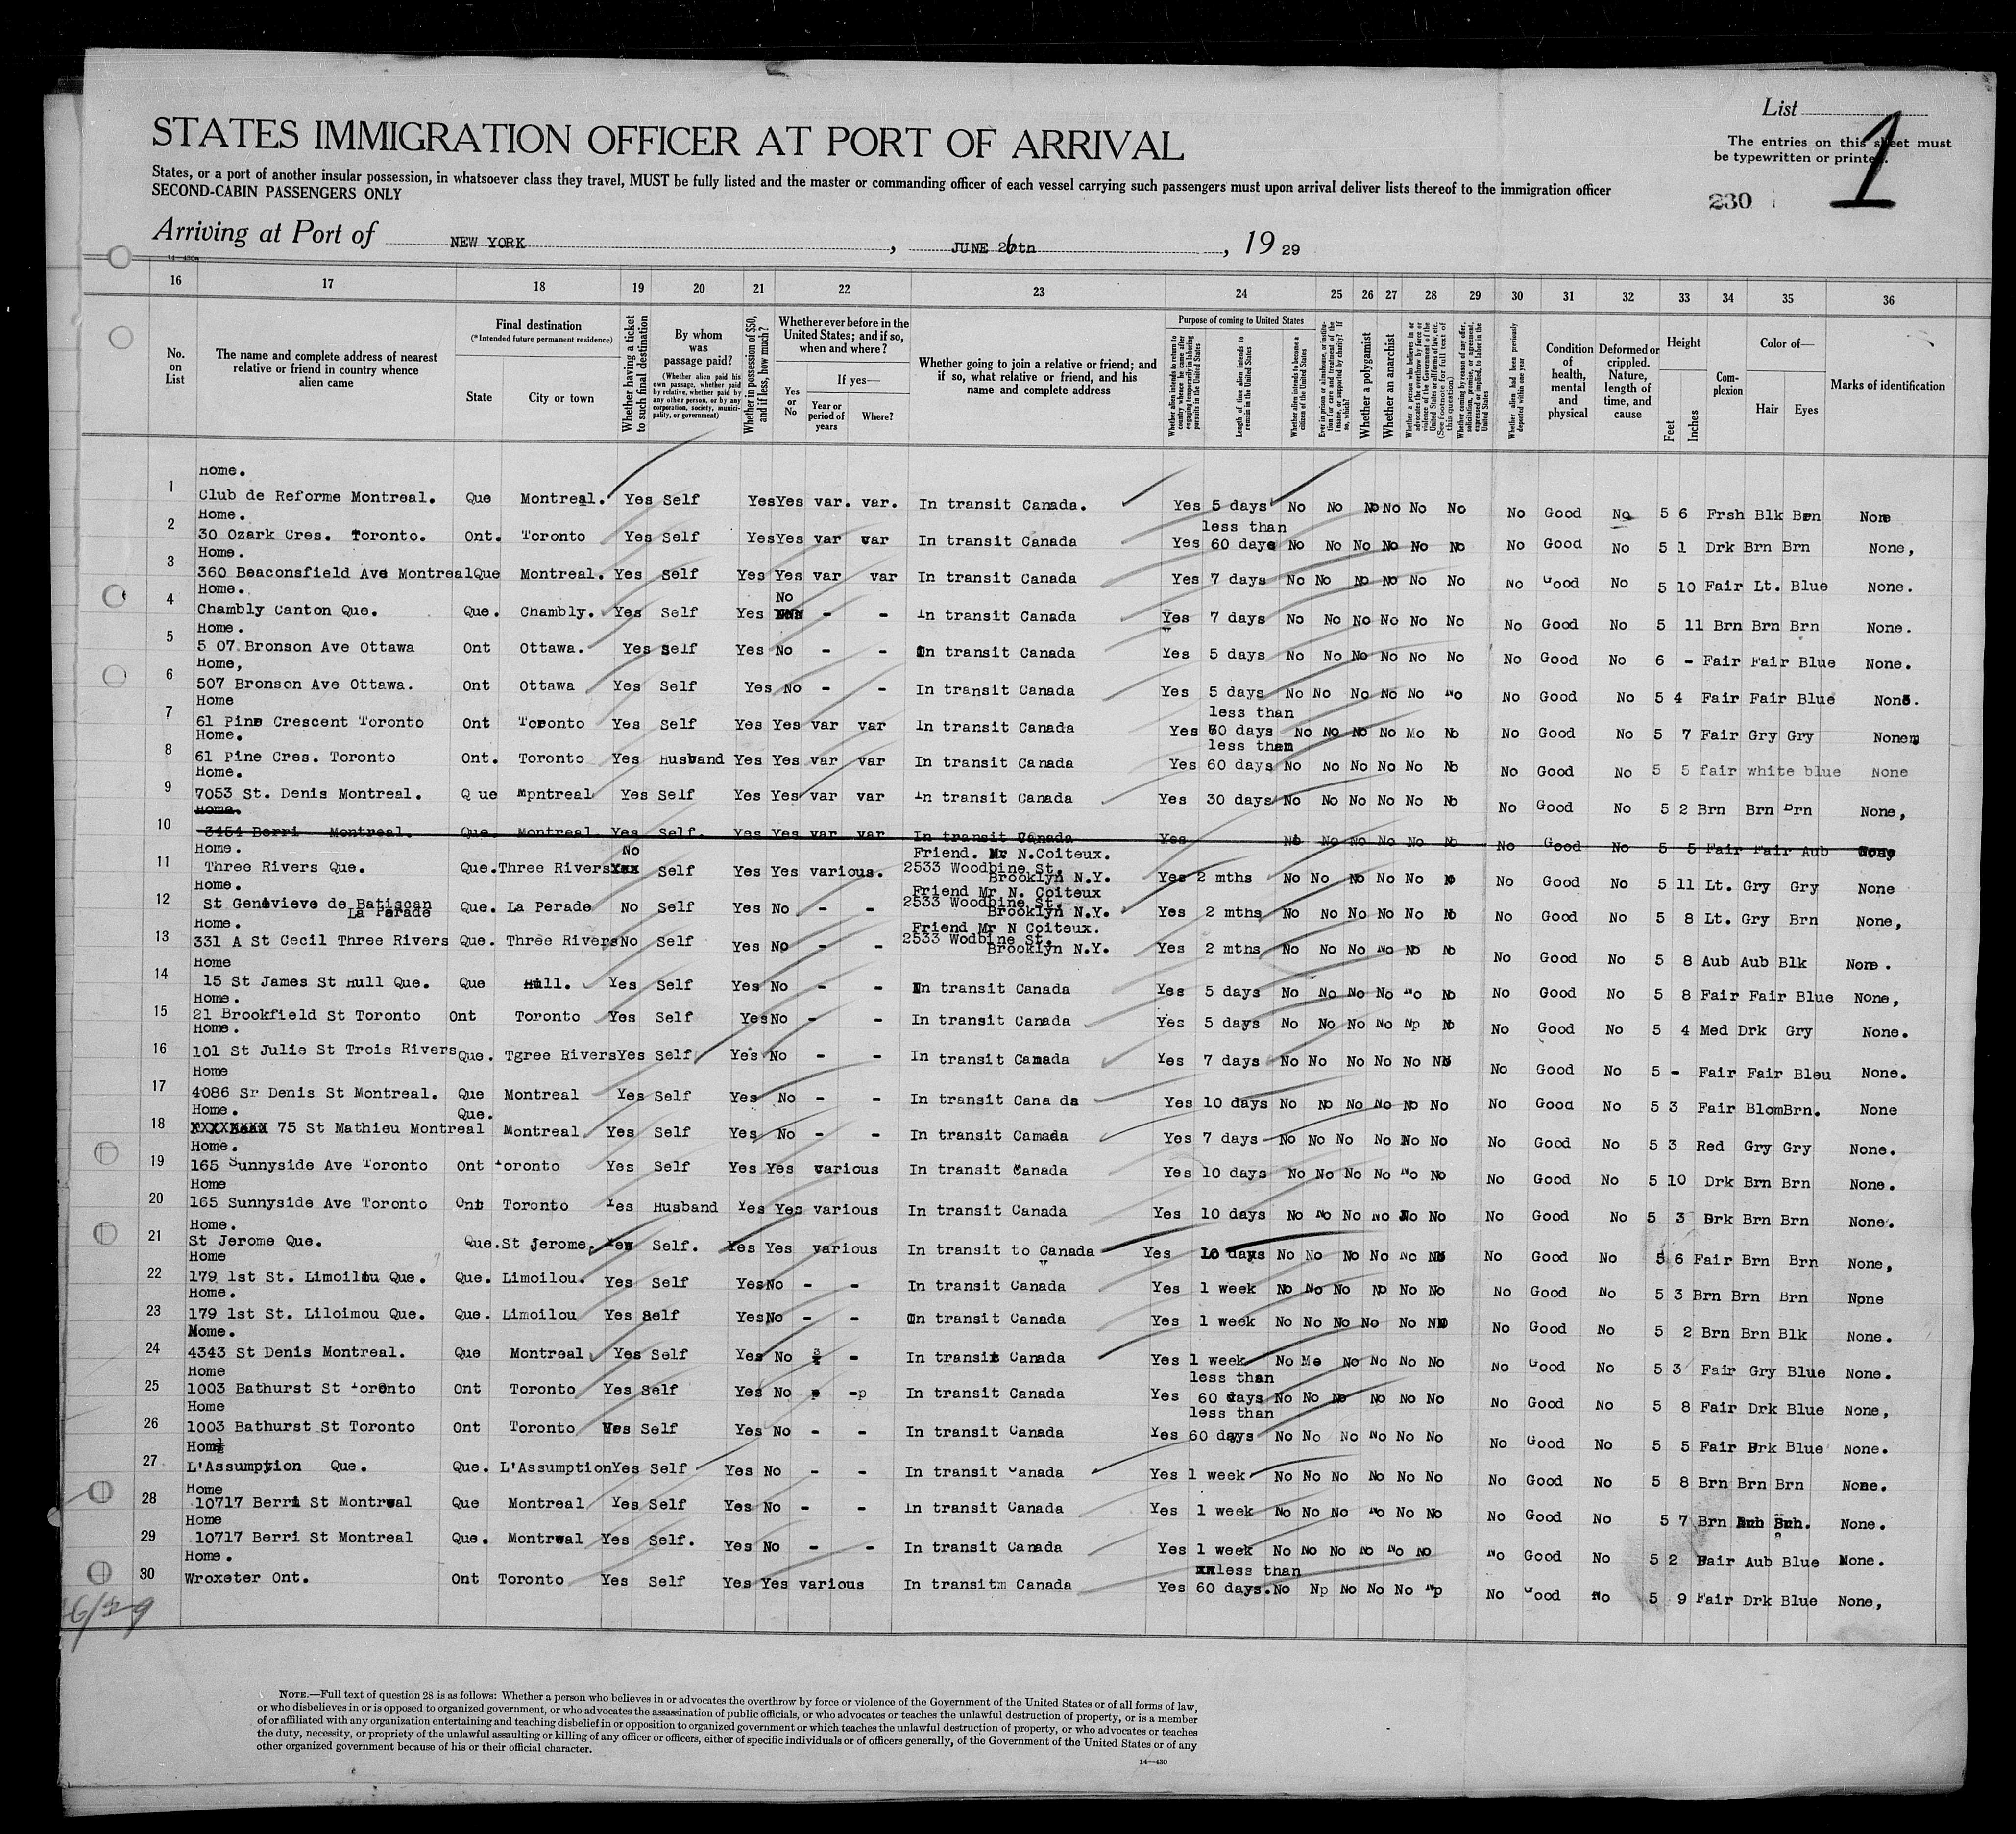 List
STATES IMMIGRATION OFFICER AT PORT OF ARRIVAL
The entries on this sheet must
be typewritten or printed.
1
States, or a port of another insular possession, in whatsoever class they travel, MUST be fully listed and the master or commanding officer of each vessel carrying such passengers must upon arrival deliver lists thereof to the immigration officer
SECOND-CABIN PASSENGERS ONLY
230
Arriving at Port of NEW YORK, JUNE 26th, 19 29
14—430a
16 17 18 19 20 21 22 23 24 25 26 27 28 29 30 31 32 33 34 35 36
No. on List
The name and complete address of nearest relative or friend in country whence alien came
Final destination
(*Intended future permanent residence)
State
City or town
Whether having a ticket to such final destination
By whom was passage paid?
(Whether alien paid his own passage, whether paid by relative, whether paid by any other person, or by any corporation, society, municipality, or government)
Whether in possession of $50, and if less, how much?
Whether ever before in the United States; and if so, when and where?
Yes or No
If yes—
Year or period of years
Where?
Whether going to join a relative or friend; and if so, what relative or friend, and his name and complete address
Purpose of coming to United States
Whether alien intends to return to country whence he came after engaging temporarily in laboring pursuits in the United States
Length of time alien intends to remain in the United States
Whether alien intends to become a citizen of the United States
Ever in prison or almshouse, or institution for care and treatment of the insane, or supported by charity? If so, which?
Whether a polygamist
Whether an anarchist
Whether a person who believes in or advocates the overthrow by force or violence of the Government of the United States or all forms of law, etc. (See footnote for full text of this question)
Whether coming by reason of any offer, solicitation, promise, or agreement, expressed or implied, to labor in the United States
Whether alien had been previously deported within one year
Condition of health, mental and physical
Deformed or crippled. Nature, length of time, and cause
Height
Feet
Inches
Complexion
Color of—
Hair
Eyes
Marks of identification
Home.
1 Club de Reforme Montreal. Que Montreal. Yes Self Yes Yes var. var. In transit Canada. Yes 5 days No No No No No No No Good No 5 6 Frsh Blk Brn None
Home. less than
2 30 Ozark Cres. Toronto. Ont. Toronto Yes Self Yes Yes var var In transit Canada Yes 60 days No No No No No No No Good No 5 1 Drk Brn Brn None,
Home.
3 360 Beaconsfield Ave Montreal Que Montreal. Yes Self Yes Yes var var In transit Canada Yes 7 days No No No No No No No Good No 5 10 Fair Lt. Blue None.
Home. No
4 Chambly Canton Que. Que. Chambly. Yes Self Yes - - In transit Canada Yes 7 days No No No No No No No Good No 5 11 Brn Brn Brn None.
Home.
5 5 07 Bronson Ave Ottawa Ont Ottawa. Yes Self Yes No - - In transit Canada Yes 5 days No No No No No No No Good No 6 - Fair Fair Blue None.
Home,
6 507 Bronson Ave Ottawa. Ont Ottawa Yes Self Yes No - - In transit Canada Yes 5 days No No No No No No No Good No 5 4 Fair Fair Blue None.
Home less than
7 61 Pine Crescent Toronto Ont Toronto Yes Self Yes Yes var var In transit Canada Yes 60 days No No No No Mo No No Good No 5 7 Fair Gry Gry Nonem
Home. less than
8 61 Pine Cres. Toronto Ont. Toronto Yes Husband Yes Yes var var In transit Canada Yes 60 days No No No No No No No Good No 5 5 fair white blue None
Home.
9 7053 St. Denis Montreal. Q ue Mpntreal Yes Self Yes Yes var var In transit Canada Yes 30 days No No No No No No No Good No 5 2 Brn Brn Brn None,
Home.
10 3454 Berri Montreal. Que. Montreal Yes Self. Yes Yes var var In transit Canada Yes No No No No No No No Good No 5 5 Fair Fair Aub None
Home. No Friend. Mr N.Coiteux.
11 Three Rivers Que. Que. Three Rivers Self Yes Yes various. 2533 Woodbine St. Brooklyn N.Y. Yes 2 mths No No No No No No No Good No 5 11 Lt. Gry Gry None
Home. Friend Mr N. Coiteux
12 St Genevieve de Batiscan La Perade Que. La Perade No Self Yes No - - 2533 Woodbine St. Brooklyn N.Y. Yes 2 mths No No No No No No No Good No 5 8 Lt. Gry Brn None,
Home. Friend Mr N Coiteux.
13 331 A St Cecil Three Rivers Que. Three Rivers No Self Yes No - - 2533 Wodbine St. Brooklyn N.Y. Yes 2 mths No No No No No No No Good No 5 8 Aub Aub Blk None.
Home
14 15 St James St Hull Que. Que Hull. Yes Self Yes No - - In transit Canada Yes 5 days No No No No No No No Good No 5 8 Fair Fair Blue None,
Home.
15 21 Brookfield St Toronto Ont Toronto Yes Self Yes No - - In transit Canada Yes 5 days No No No No Np No No Good No 5 4 Med Drk Gry None.
Home.
16 101 St Julie St Trois Rivers Que. Tgree Rivers Yes Self Yes No - - In transit Canada Yes 7 days No No No No No No No Good No 5 - Fair Fair Bleu None.
Home
17 4086 Sr Denis St Montreal. Que Montreal Yes Self Yes No - - In transit Cana da Yes 10 days No No No No No No No Good No 5 3 Fair Blom Brn. None
Home. Que.
18 75 St Mathieu Montreal Montreal Yes Self Yes No - - In transit Camada Yes 7 days No No No No No No No Good No 5 3 Red Gry Gry None.
Home.
19 165 Sunnyside Ave Toronto Ont Toronto Yes Self Yes Yes various In transit Canada Yes 10 days No No No No No No No Good No 5 10 Drk Brn Brn None.
Home
20 165 Sunnyside Ave Toronto Ont Toronto Yes Husband Yes Yes various In transit Canada Yes 10 days No No No No No No No Good No 5 3 Drk Brn Brn None.
Home.
21 St Jerome Que. Que. St Jerome. Yes Self. Yes Yes various In transit to Canada Yes 10 days No No No No No No No Good No 5 6 Fair Brn Brn None,
Home
22 179 1st St. Limoilou Que. Que. Limoilou. Yes Self Yes No - - In transit Canada Yes 1 week No No No No No No No Good No 5 3 Brn Brn Brn None
Home.
23 179 1st St. Liloimou Que. Que. Limoilou Yes Self Yes No - - In transit Canada Yes 1 week No No No No No No No Good No 5 2 Brn Brn Blk None.
Home.
24 4343 St Denis Montreal. Que Montreal Yes Self Yes No - In transit Canada Yes 1 week No Me No No No No No Good No 5 3 Fair Gry Blue None.
Home less than
25 1003 Bathurst St Toronto Ont Toronto Yes Self Yes No -p In transit Canada Yes 60 days No No No No No No No Good No 5 8 Fair Drk Blue None,
Home less than
26 1003 Bathurst St Toronto Ont Toronto Yes Self Yes No - - In transit Canada Yes 60 days No No No No No No No Good No 5 5 Fair Drk Blue None.
Home
27 L'Assumption Que. Que. L'Assumption Yes Self Yes No - - In transit Canada Yes 1 week No No No No No No No Good No 5 8 Brn Brn Brn None.
Home
28 10717 Berri St Montreal Que Montreal Yes Self Yes No - - In transit Canada Yes 1 week No No No No No No No Good No 5 7 Brn None.
Home
29 10717 Berri St Montreal Que. Montreal Yes Self. Yes No - - In transit Canada Yes 1 week No No No No No No No Good No 5 2 Fair Aub Blue None.
Home. less than
30 Wroxeter Ont. Ont Toronto Yes Self Yes Yes various In transitm Canada Yes 60 days. No Np No No No Np No Good No 5 9 Fair Drk Blue None,
NOTE.—Full text of question 28 is as follows: Whether a person who believes in or advocates the overthrow by force or violence of the Government of the United States or of all forms of law,
or who disbelieves in or is opposed to organized government, or who advocates the assassination of public officials, or who advocates or teaches the unlawful destruction of property, or is a member
of or affiliated with any organization entertaining and teaching disbelief in or opposition to organized government or which teaches the unlawful destruction of property, or who advocates or teaches
the duty, necessity, or propriety of the unlawful assaulting or killing of any officer or officers, either of specific individuals or of officers generally, of the Government of the United States or of any
other organized government because of his or their official character.
14—430